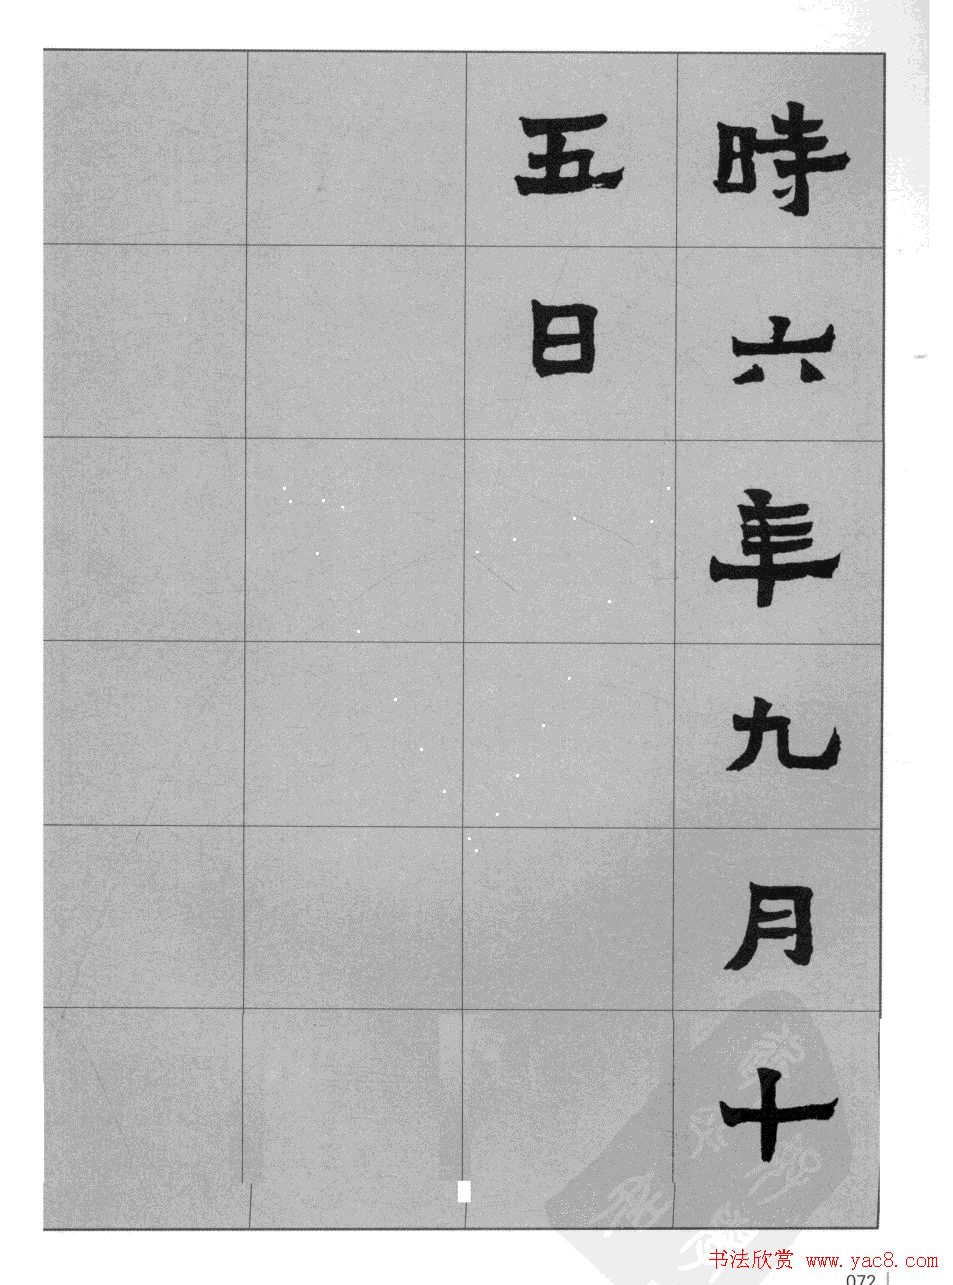 時六年九月十
五日
书法欣赏 www.yac8.com
072